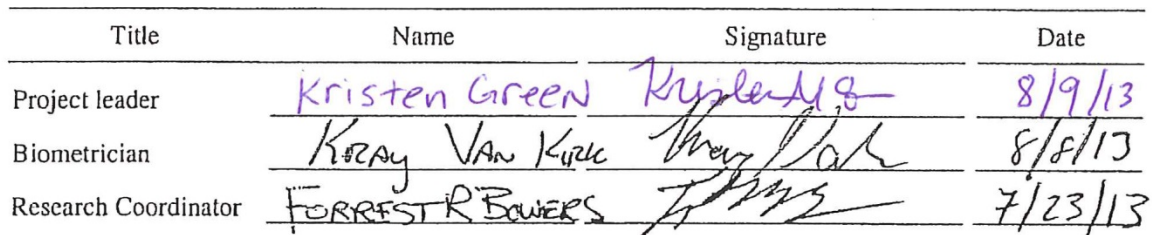 Title Name Signature Date
Project leader Kristen Green 8/9/13
Biometrician Kray Van Kirk 8/8/13
Research Coordinator FORREST R BOWERS 7/23/13